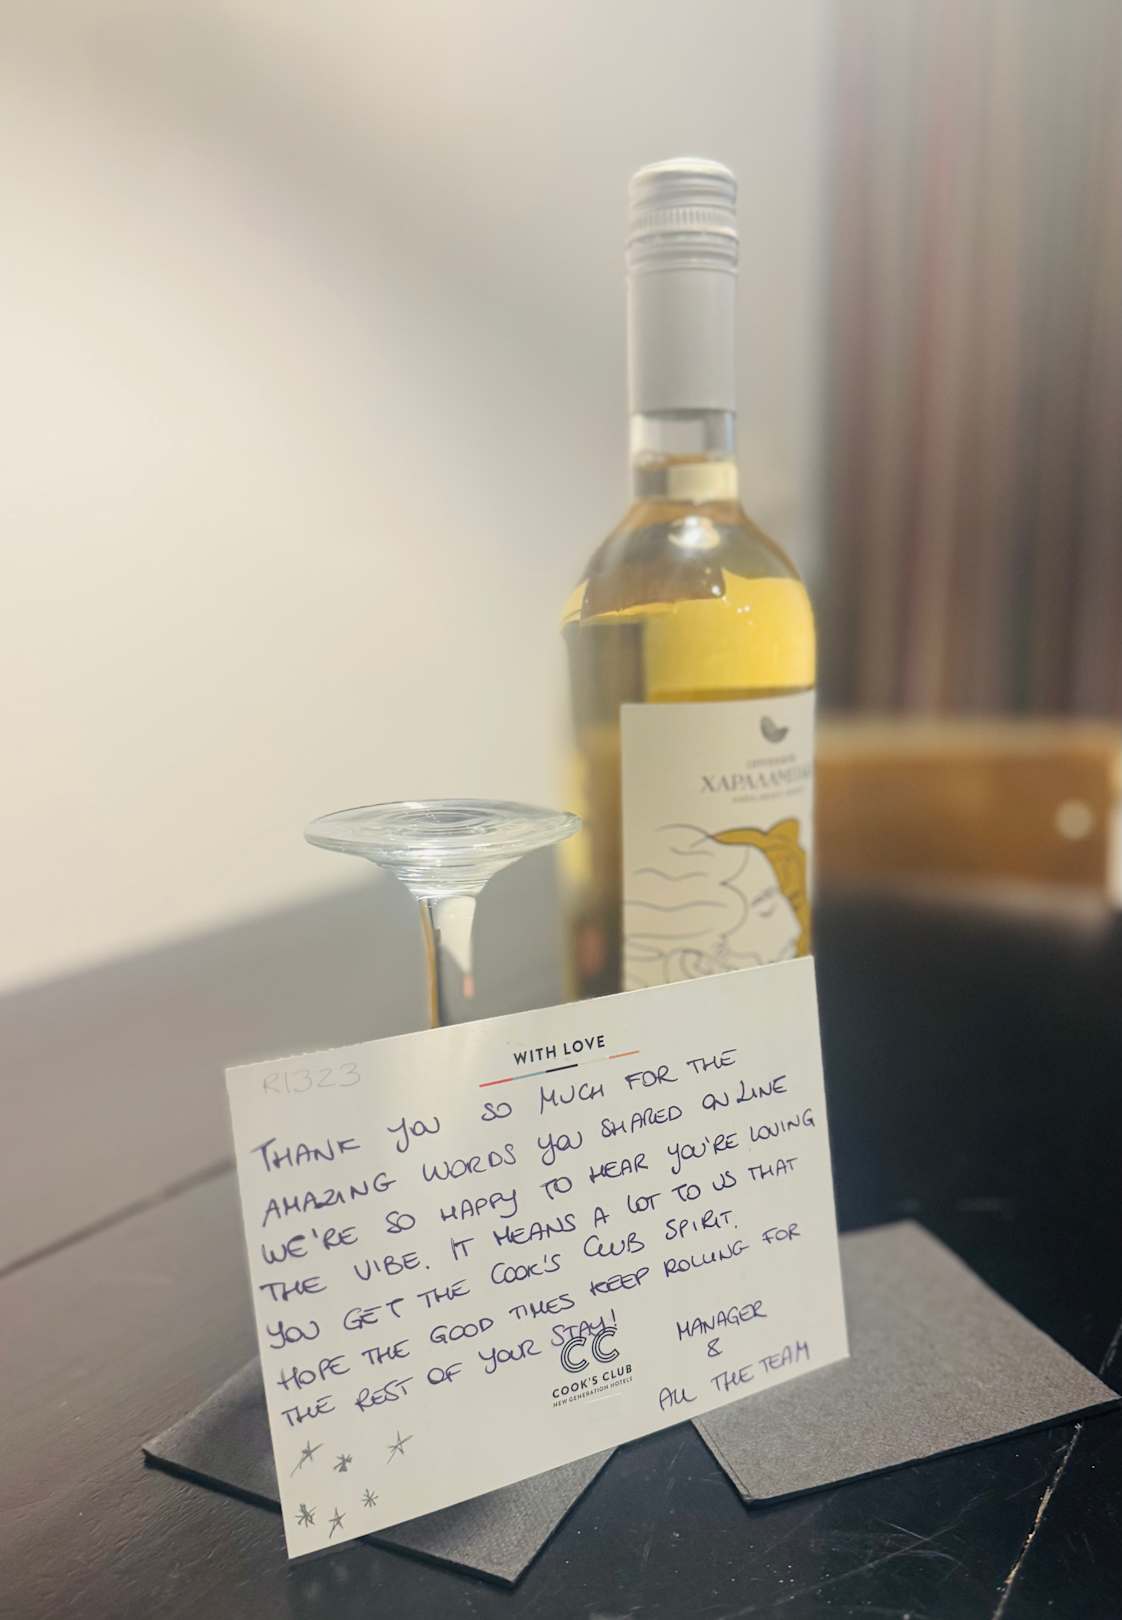 ΧΑΡΑΛΑΜΠ
WITH LOVE
R1323
THANK YOU SO MUCH FOR THE
AMAZING WORDS YOU SHARED ONLINE
WE'RE SO HAPPY TO HEAR YOU'RE LOVING
THE VIBE. IT MEANS A LOT TO US THAT
YOU GET THE COOK'S CLUB SPIRIT.
HOPE THE GOOD TIMES KEEP ROLLING FOR
THE REST OF YOUR STAY!
MANAGER
&
ALL THE TEAM
CC
COOK'S CLUB
NEW GENERATION HOTELS